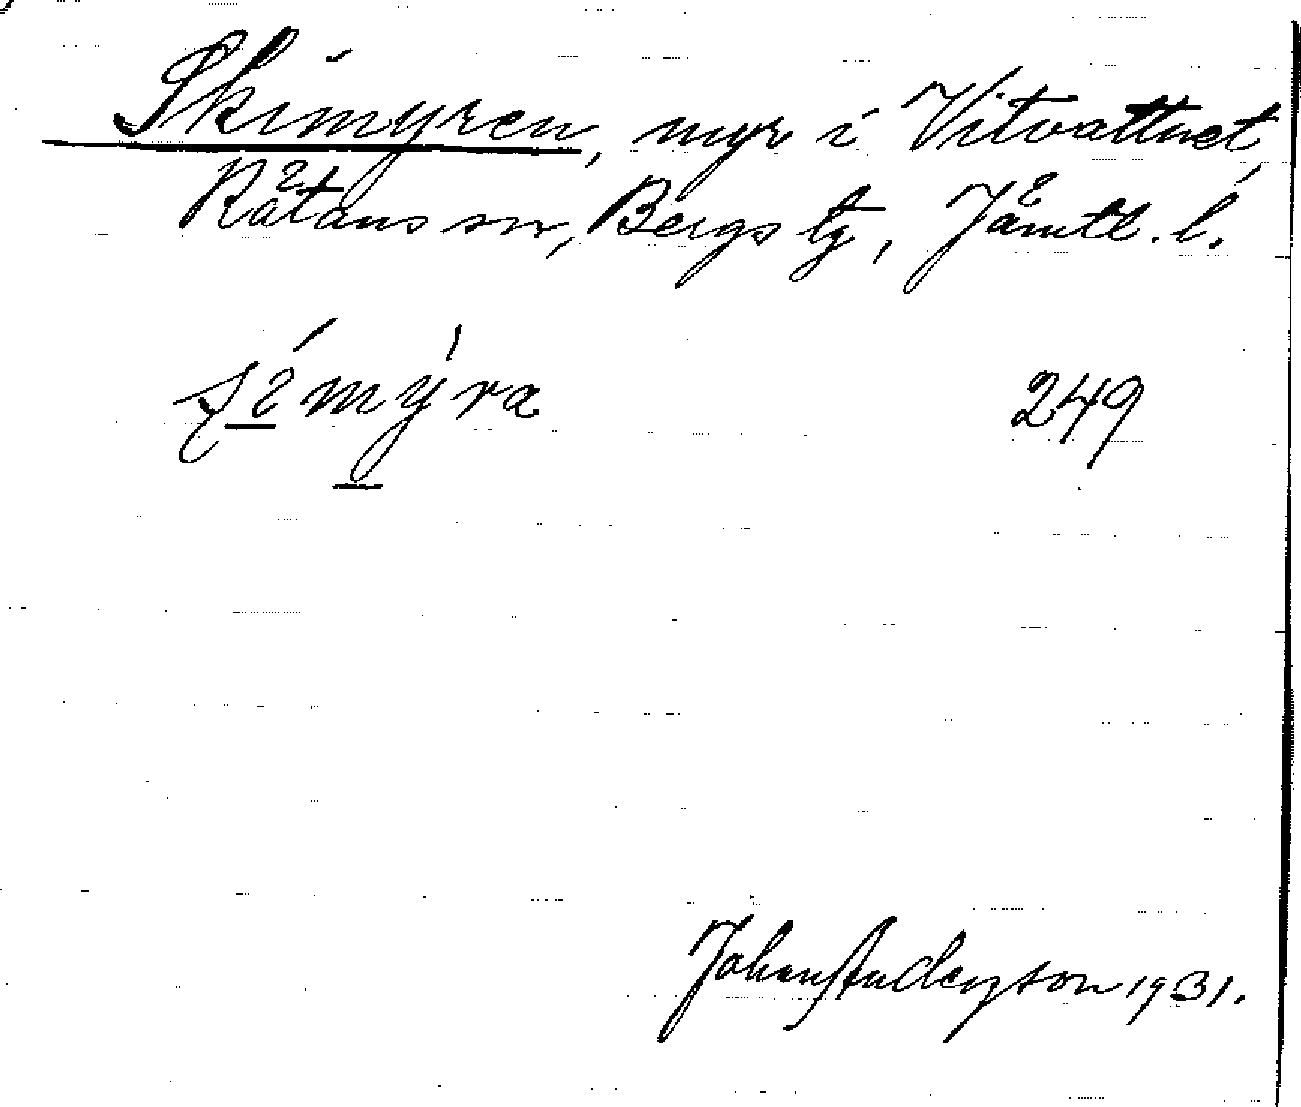 Skimyren, myr i Vitvattnet,
Råtans sn, Bergs tg, Jämtl. l.
249
Johan Anderzson 1931.